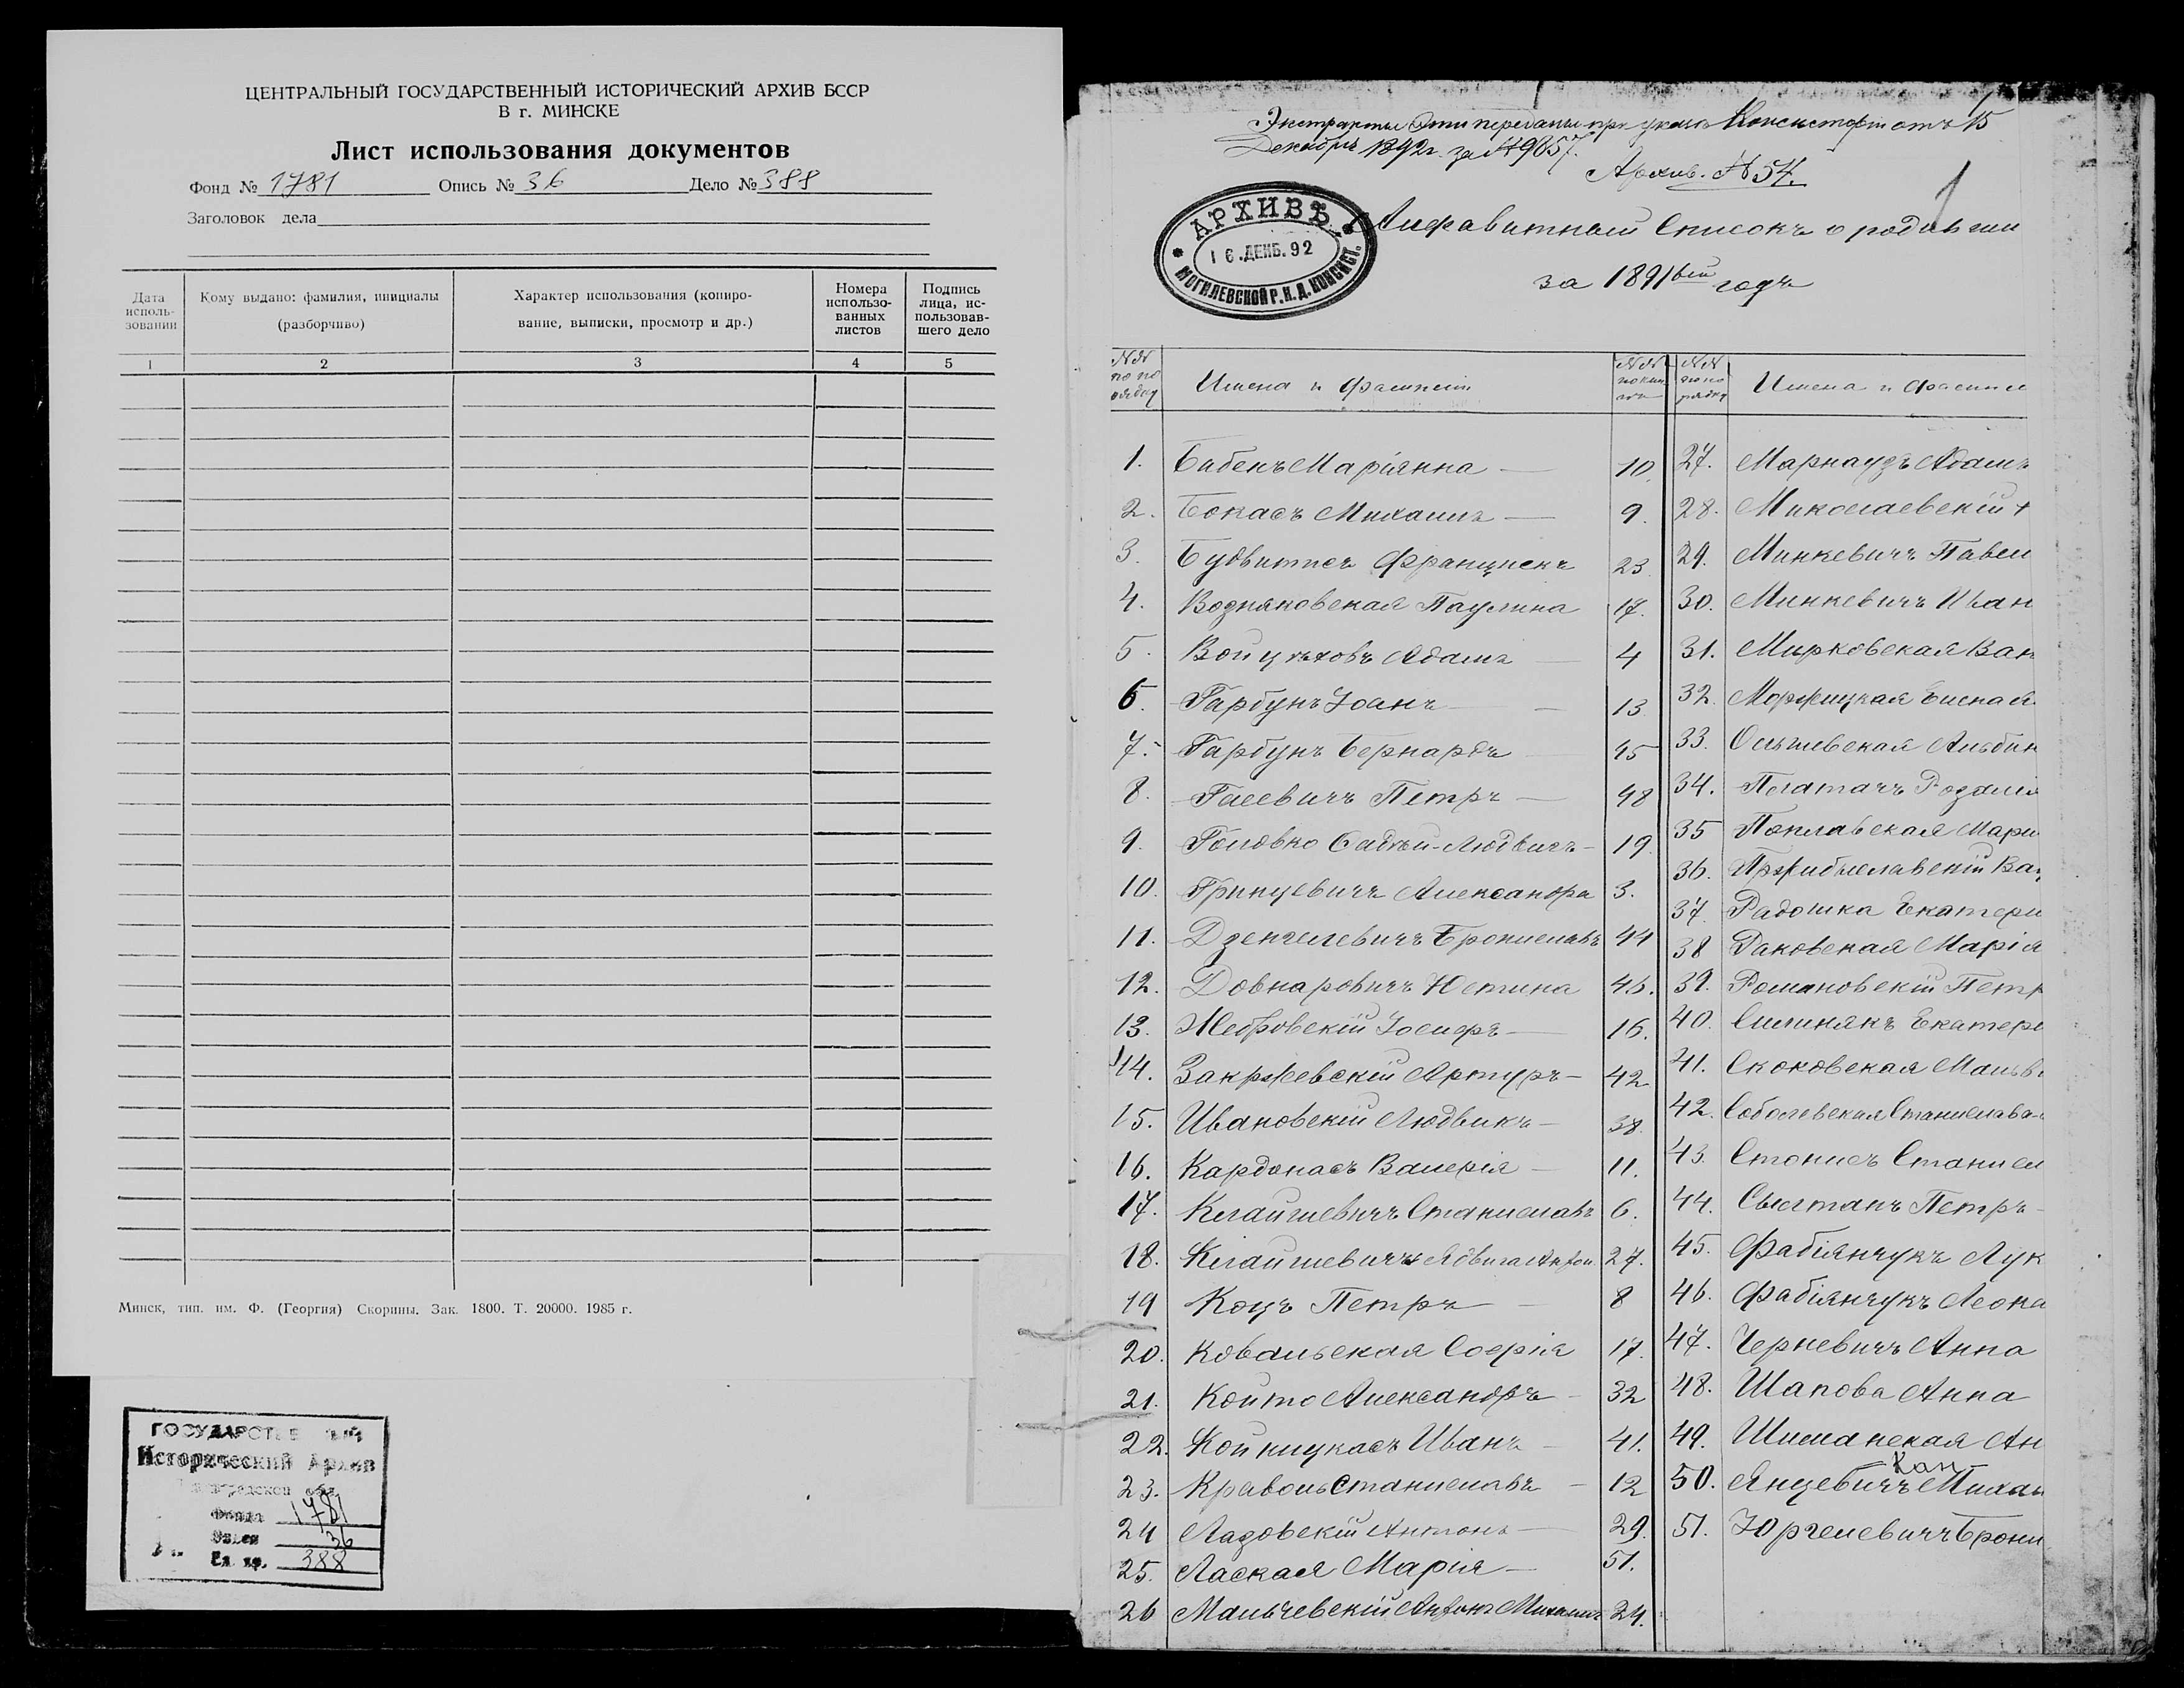 ЦЕНТРАЛЬНЫЙ ГОСУДАРСТВЕННЫЙ ИСТОРИЧЕСКИЙ АРХИВ БССР
В г. МИНСКЕ
Лист использования документов
Фонд № 1781 Опись № 36 Дело № 388
Заголовок дела
Дата использования
Кому выдано: фамилия, инициалы (разборчиво)
Характер использования (копирование, выписки, просмотр и др.)
Номера использованных листов
Подпись лица, использовавшего дело
1 2 3 4 5
Минск, тип. им. Ф. (Георгия) Скорины. Зак. 1800. Т. 20000. 1985 г.
ГОСУДАРСТ
Исторический Архив
фонда 1781
36
Ед. хр. 388
Экстракты Эти переданы при указе Консисторіи отъ 15
Декабря 1892 г. за № 9857.
Архив. № 54.
1
АРХИВЪ
16.ДЕКБ.92
МОГИЛЕВСКОЙ Р.К.Д.КОНСИСТ.
Алфавитный Списокъ о родивши
за 1891вый годъ
№№ по порядку Имена и фамиліи №№ по кни №№ по порядку Имена и Фамил
1. Бабенъ Маріянна 10. 27. Марнаузъ Адамъ
2. Бокасъ Михаилъ 9. 28. Миколаевскій
3. Будвитисъ Францискъ 23. 29. Минкевичъ Павел
4. Возняковская Паулина 17. 30. Минкевичъ Иван
5. Войцѣховъ Адамъ 4 31. Мирковская Ван
6. Гарбунъ Іоанъ 13 32. Моржицкая
7. Гарбунъ Бернардъ 45 33. Ольшевская Альбин
8. Гасевичъ Петръ 48 34. Погатачъ Розалія
9. Головко Фадѣй-Людвигъ 19. 35 Поплавская Мари
10. Гринцевичъ Александра 3. 36. Пржибыславскій Вац
11. Дзенгелевичъ Брониславъ 44 37. Радошка Екатери
12. Довнаровичъ Юстина 46. 38 Раковская Марія
13. Жебровскій Іосифъ 16. 39. Романовскій Петр
14. Закржевскій Артуръ 42 40. Симинякъ Екатери
15. Ивановскій Людвикъ 38. 41. Скоковская Мальв
16. Кардонасъ Валерія 11. 42. Соболевская Станислава
17. Клайшевичъ Станиславъ 6. 43. Стонисъ Станисл
18. Клайшевичъ Ядвига Антон. 27. 44. Сылтанъ Петръ
19 Коцъ Петръ 8 45. Фабіянчукъ Лук
20. Ковальская Софія 17. 46. Фабіянчукъ Леока
21. Който Александръ 32 47. Черневичъ Анна
22. Кольницкасъ Иванъ 41. 48. Шапова Анна
23. Краволь Станиславъ 12 49. Шиманская Ан
24 Лазовскій Антонъ 29. 50. Янцевичъ Михаи
Кан
25. Лаская Марія 51. 51. Юргелевичъ Брони
26 Мальчевскій Антонъ Михаилъ 24.